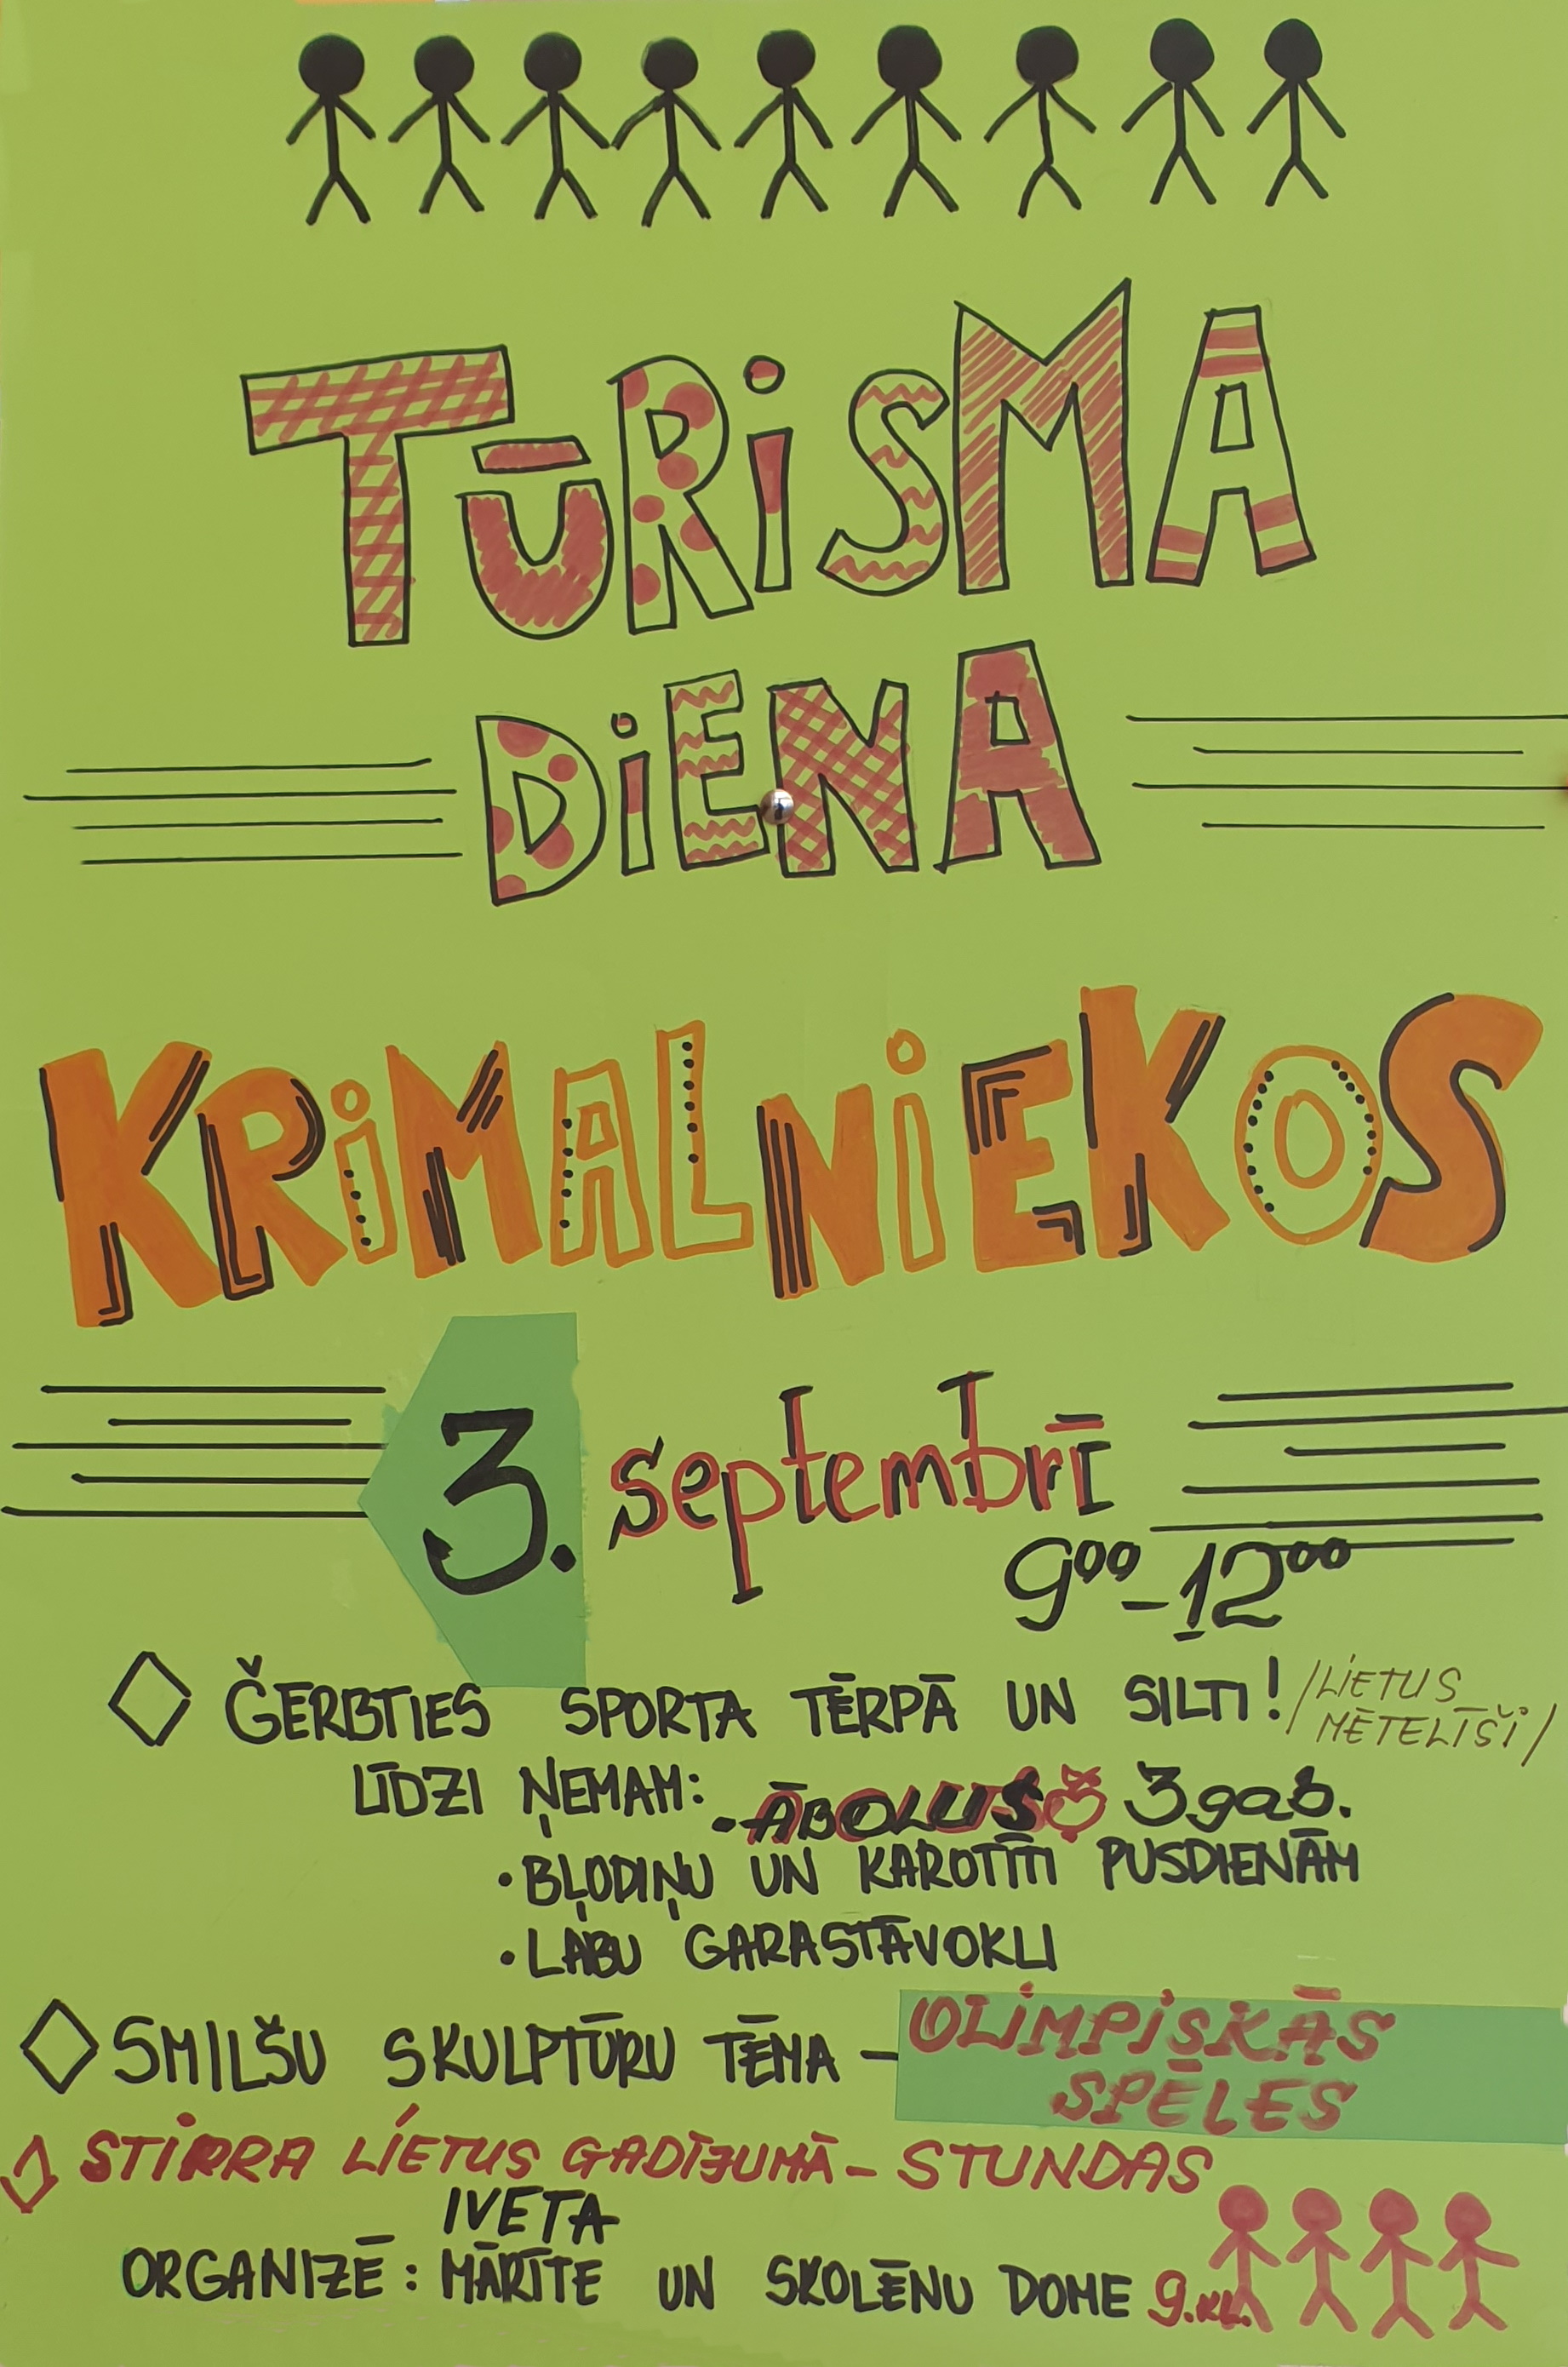 TŪRiSMA
DiENA
KRiMALNiEKOS
3. septembrī
9⁰⁰-12⁰⁰
ĢĒRBTIES SPORTA TĒRPĀ UN SILTI! /LIETUS
MĒTELĪŠI/
LĪDZI ŅEMAM: •ĀBOLUS 3 gab.
• BĻODIŅU UN KAROTĪTI PUSDIENĀM
• LABU GARASTĀVOKLI
SMILŠU SKULPTŪRU TĒMA – OLiMPiSKĀS
SPĒLES
STiPRA LiETUS GADĪJUMĀ – STUNDAS
IVETA
ORGANIZĒ: MĀRĪTE UN SKOLĒNU DOME 9.kl.